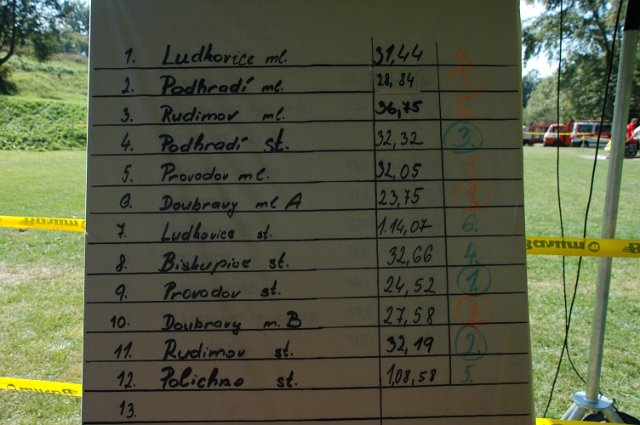 1. Ludkovice ml. 31,44 4.
2. Podhradí ml. 28,84 3.
3. Rudimov ml. 36,75
4. Podhradí st. 32,32 3.
5. Provodov ml. 32,05
6. Doubravy ml A 23,75 1.
7. Ludkovice st. 1.14,07 6.
8. Biskupice st. 32,66 4.
9. Provodov st. 24,52 1.
10. Doubravy m. B 27,58 2.
11. Rudimov st. 32,19 2.
12. Polichno st. 1,08,58 5.
13.
Barum
Barum